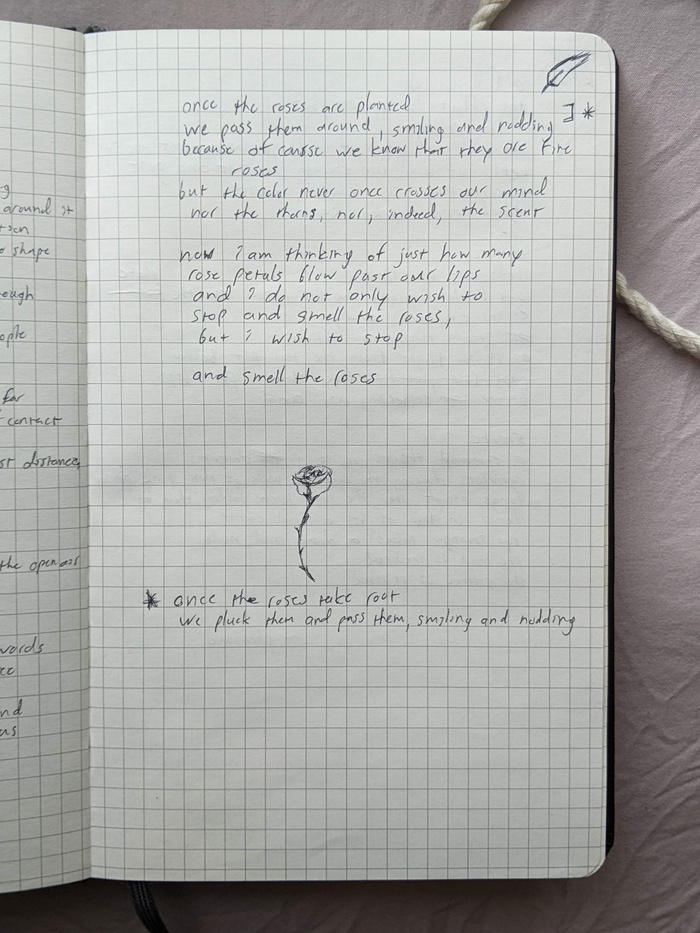 g
around it
shape
ough
ople
for
contact
st distance,
the open air
words
nd
us
once the roses are planted
we pass them around, smiling and nodding ] *
because of course we know that they are fine
roses
but the color never once crosses our mind
nor the thorns, nor, indeed, the scent
now i am thinking of just how many
rose petals flow past our lips
and i do not only wish to
stop and smell the roses,
but i wish to stop
and smell the roses
* once the roses take root
we pluck them and pass them, smiling and nodding